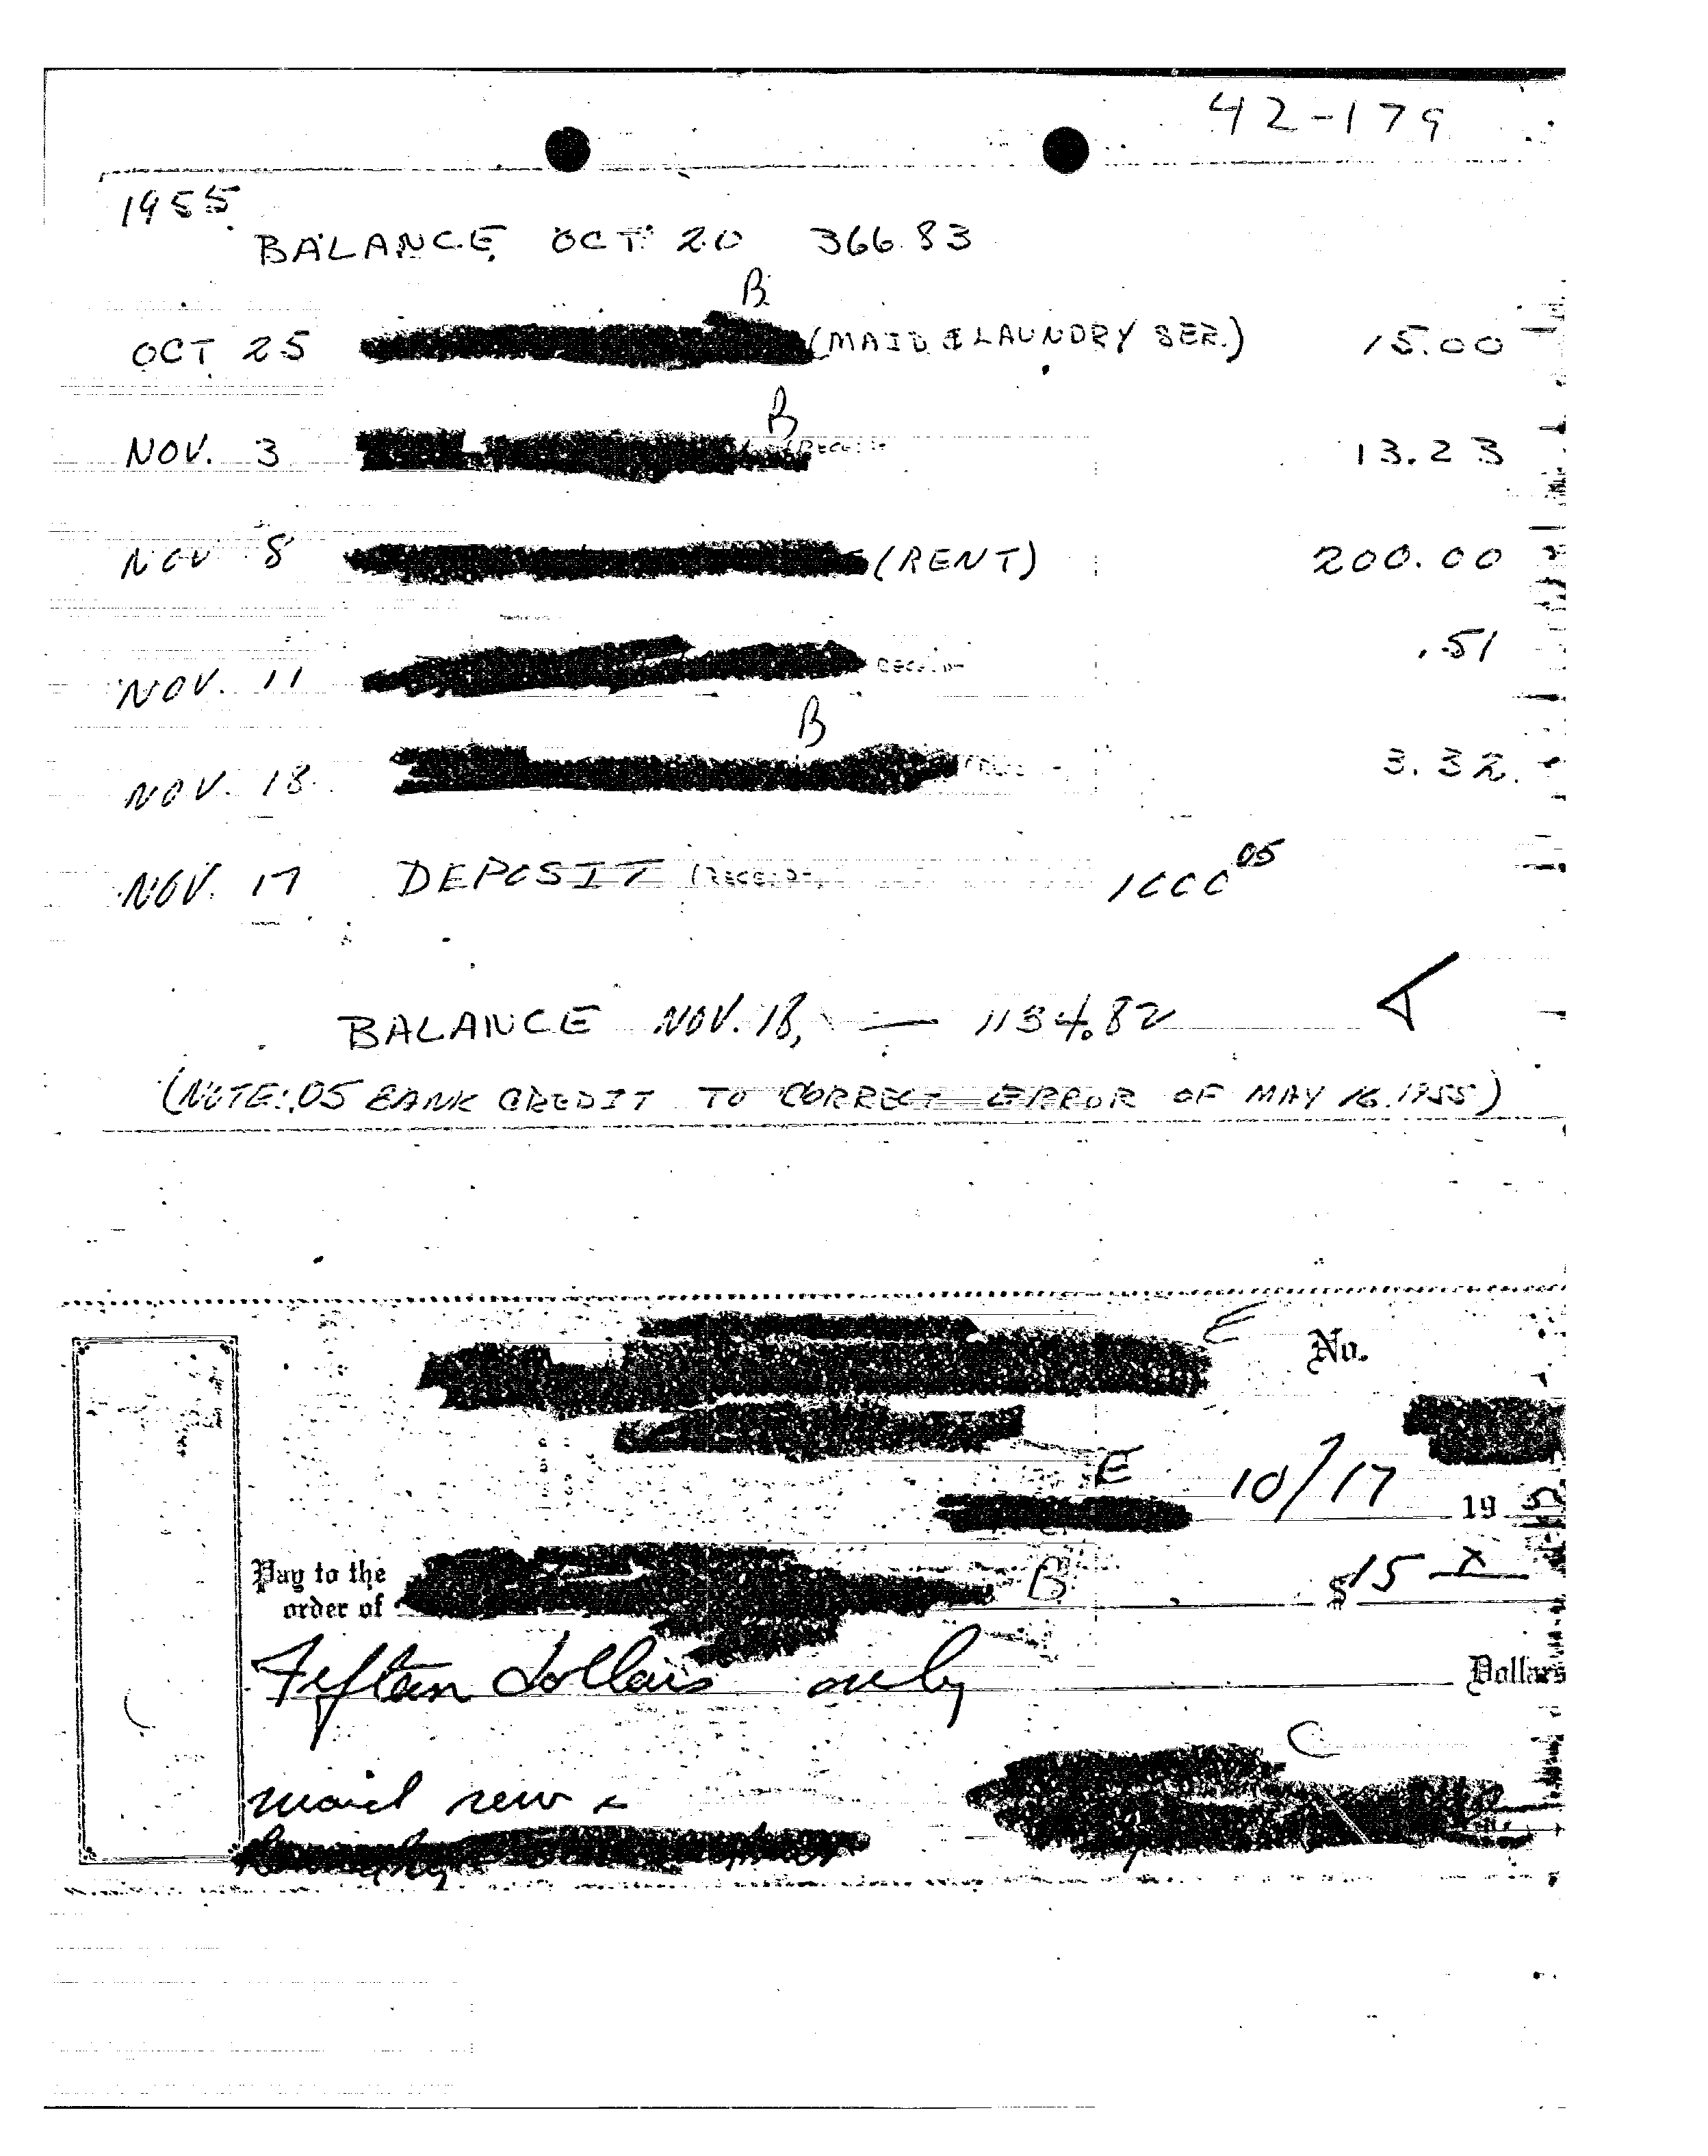 42-179
1955
BALANCE OCT 20 366.83
B
OCT 25 (MAID & LAUNDRY SER.) 15.00
B
NOV. 3 13.23
NOV 8 (RENT) 200.00
NOV. 11 .51
B
NOV. 18. 3.32
NOV. 17 DEPOSIT (Receipt) 1000 05
BALANCE NOV. 18, — 1134.82
(NOTE: .05 BANK CREDIT TO CORRECT ERROR OF MAY 16. 1955)
E
No.
E
10/17 19 5
Pay to the
order of B $15 x
Fifteen dollars only Dollars
C
maid serv &